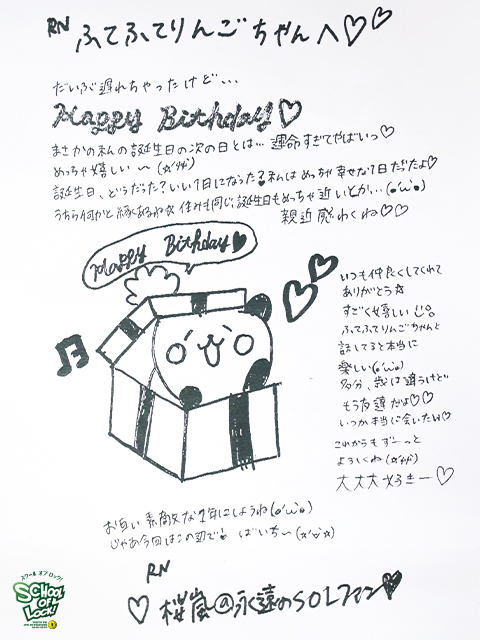 RN ふてふてりんごちゃんへ♡♡
だいぶ遅れちゃったけど...
Happy Birthday♡
まさかの私の誕生日の次の日とは... 運命すぎてやばいっ♡
めっちゃ嬉しい〜
誕生日、どうだった?いい1日になった?私はめっちゃ幸せな1日だったよ♡
うちら何かと縁あるね☆ 住みも同じ、誕生日もめっちゃ近いとか...(o'ω'o)
親近感わくね♡♡
Happy Birthday♥
いつも仲良くしてくれて
ありがとう☆
すごく嬉しい
ふてふてりんごちゃんと
話してると本当に
楽しい(o'ω'o)
多分、歳は違うけど
もう友達だよ♡♡
いつか本当に会いたいな♡
これからもずーっと
よろしくね
大大大好きー♡
お互い素敵な1年にしようね(o'ω'o)
じゃあ今回はこの辺で! ばいちー
RN
♡ 桜嵐@永遠のSOLファン♥
スクール オブ ロック!
SCHOOL
OF
LOCK!